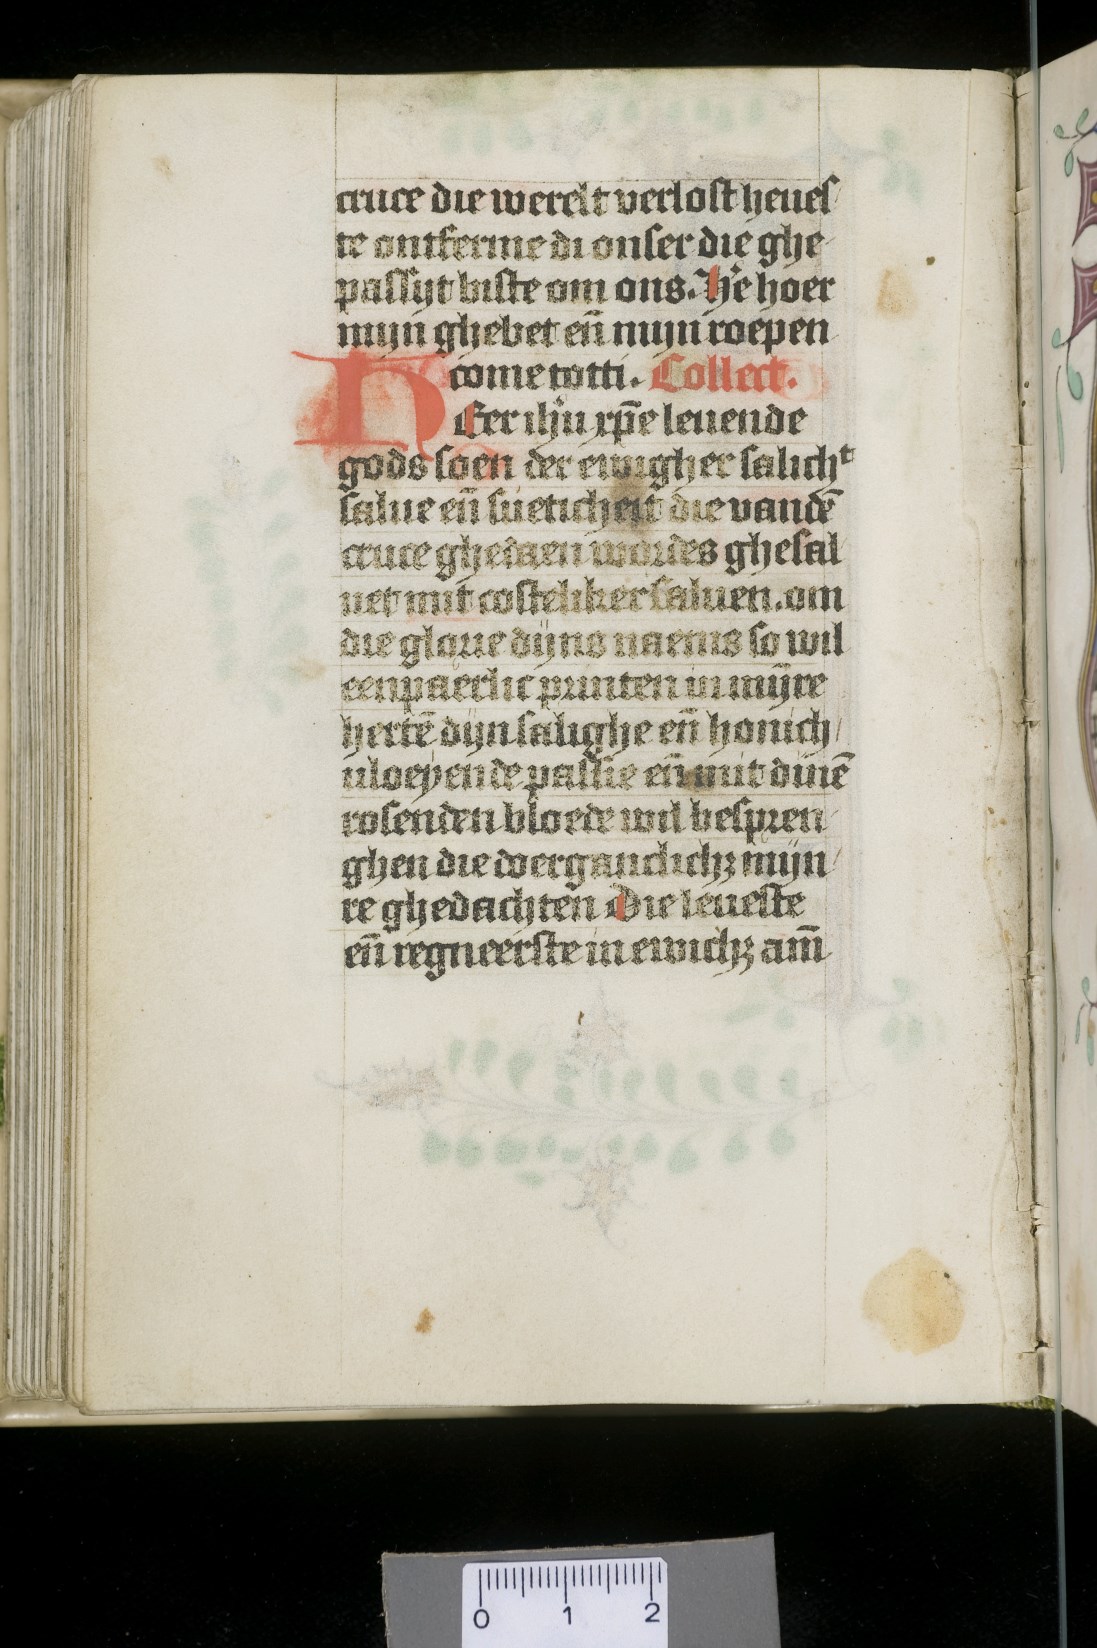 cruce die werelt verlost heues
te ontferme di onser die ghe
passijt biste om ons. He hoer
mijn ghebet en̄ mijn roepen
come totti. Collect.
HEer ihu xp̄e leuende
gods soen der ewigher salicht
salue en̄ sueticheit die vandē
cruce ghedaen wordes ghesal
uet mit costeliker saluen. om
die glorie dijns naems so wil
eenpaerlic printen in mijre
hertē dijn salighe en̄ honich
uloeyende passie en̄ mit dinē
rosenden bloede wil bespren
ghen die mijn
re ghedachten Die leueste
en̄ regneerste in ewichꝫ am̄
0 1 2